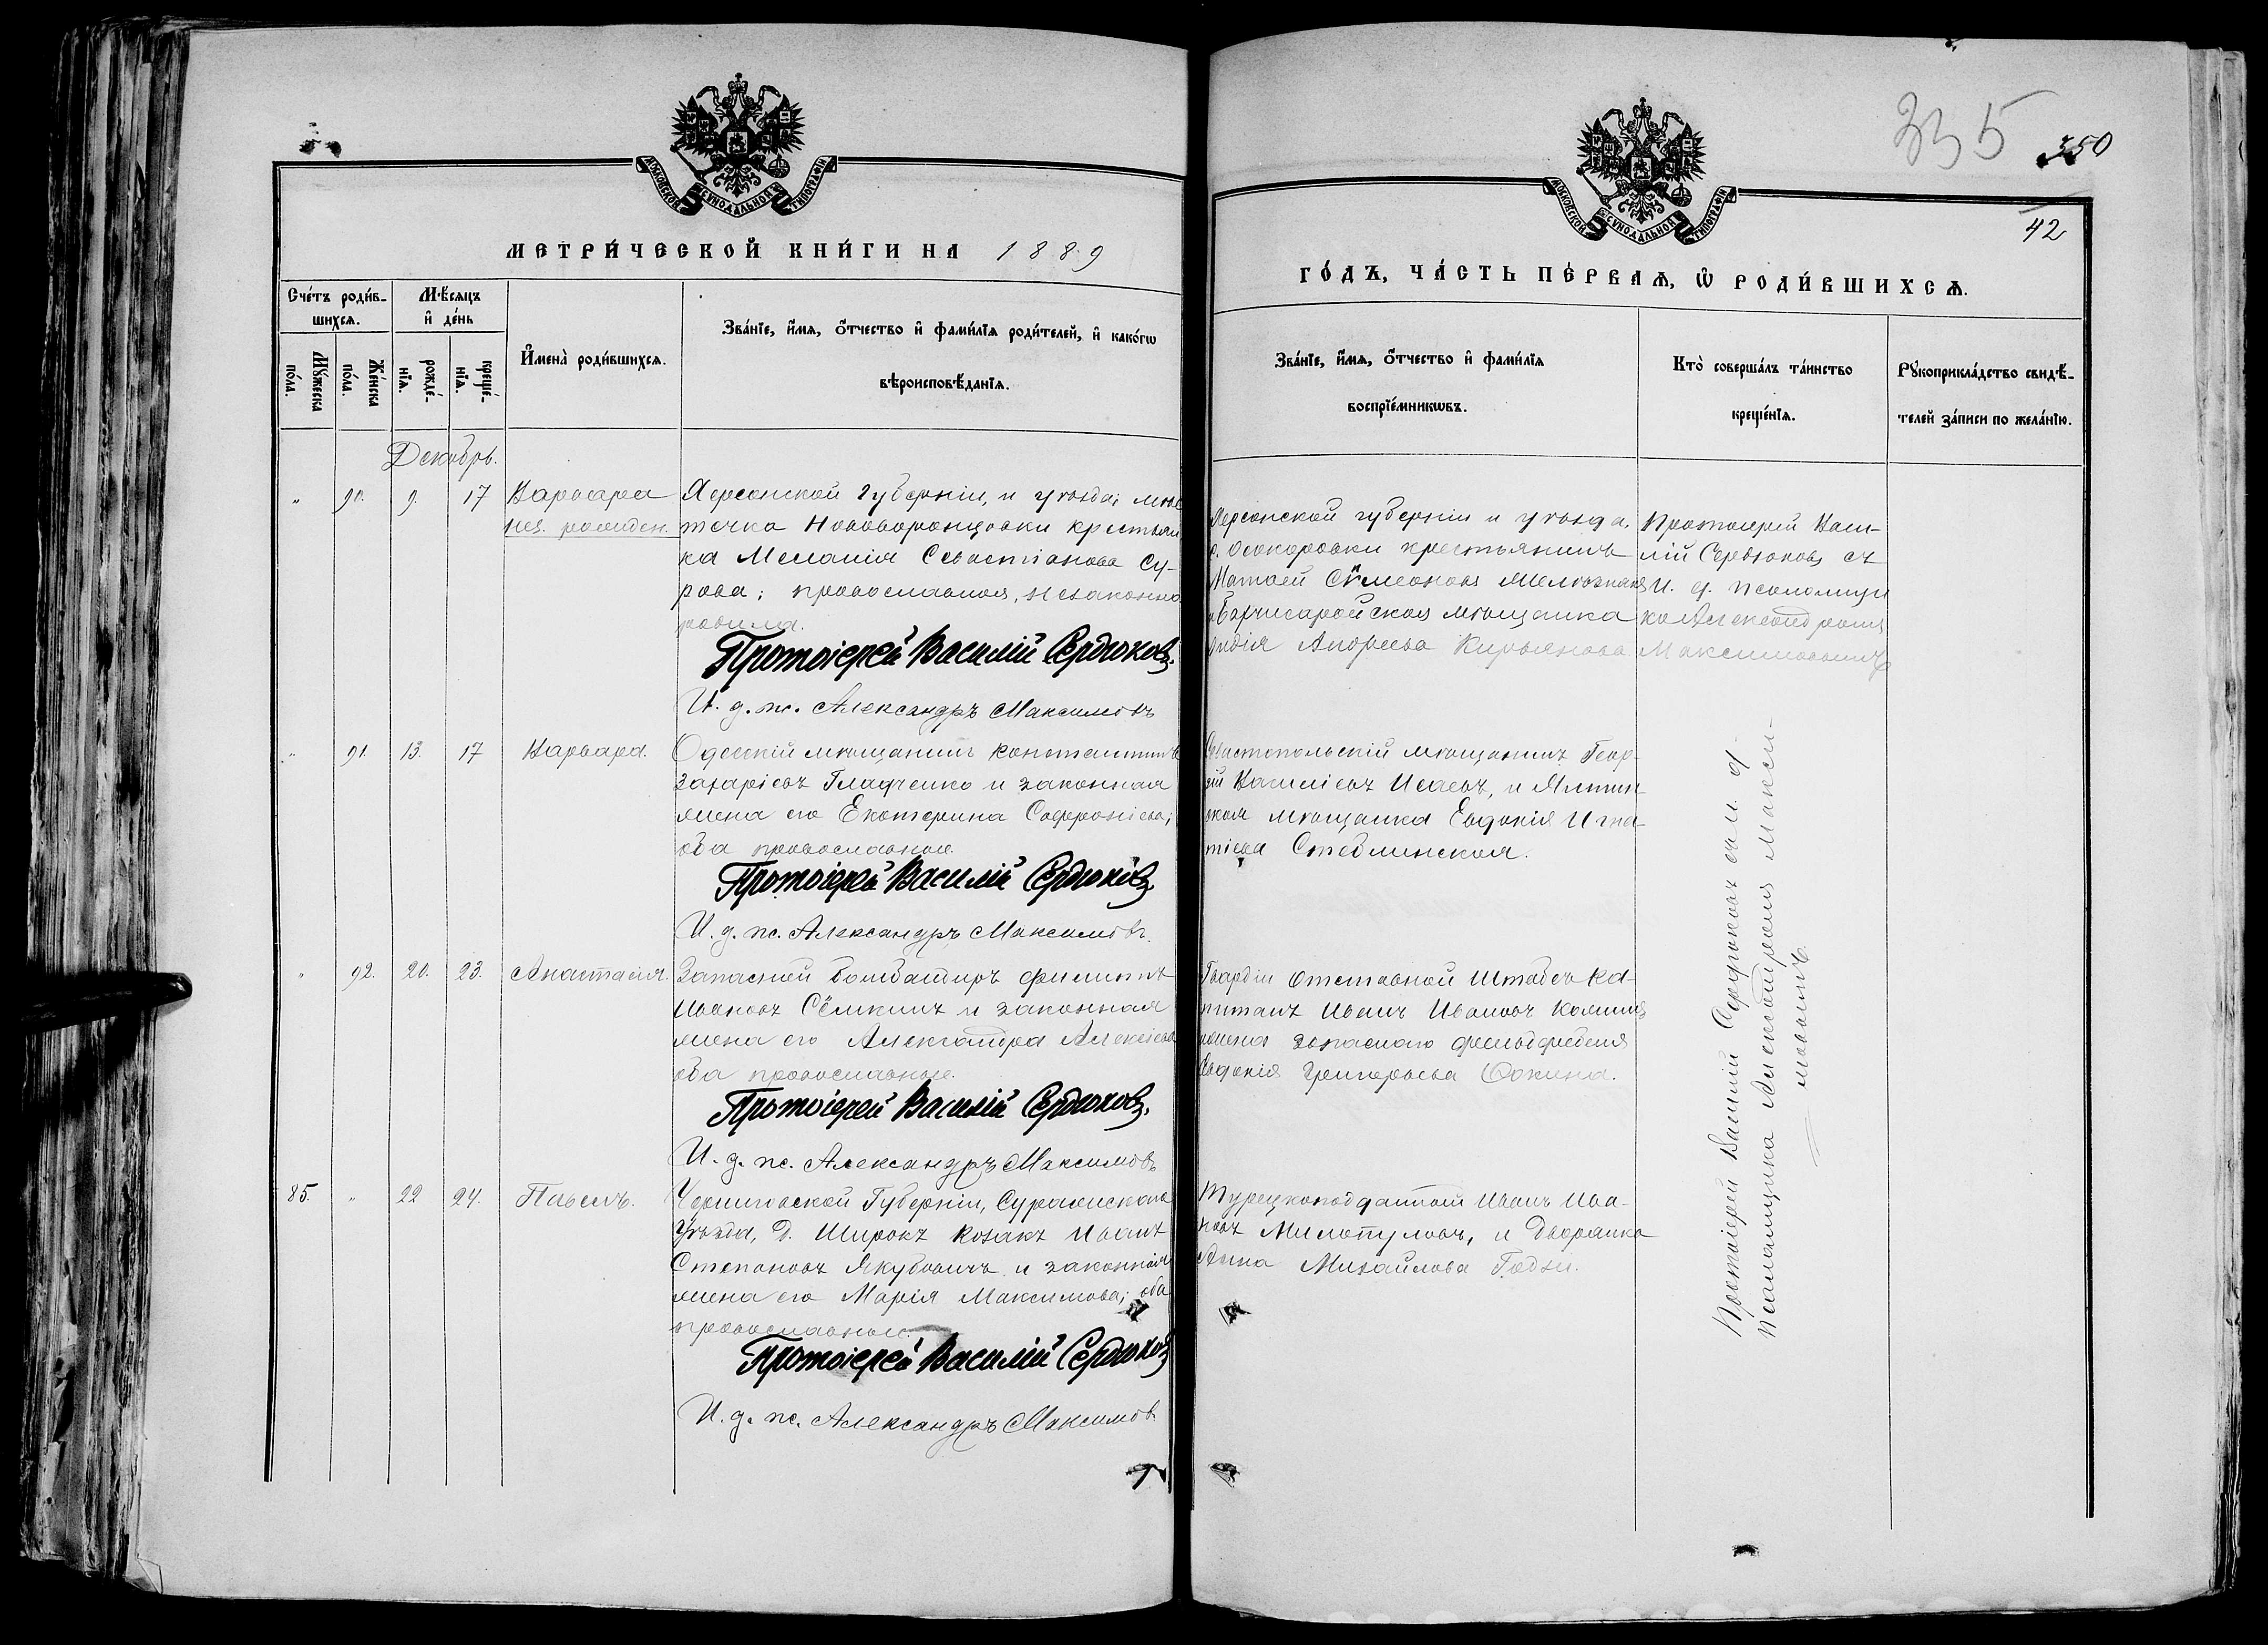 335
350
42
МОСКОВСКОЙ СѴНОДАЛЬНОЙ ТИПОГРАФІИ
МОСКОВСКОЙ СѴНОДАЛЬНОЙ ТИПОГРАФІИ
МЕТРИ́ЧЕСКОЙ КНИ́ГИ НА 1889
ГО́ДЪ, ЧА́СТЬ ПЕ́РВАѦ, Ѿ РОДИ́ВШИХСѦ.
Сче́тъ роди́в-
шихсѧ.
Мѣ́сѧцъ
и҆ де́нь
Мꙋ́жеска
по́ла.
Же́нска
по́ла.
рожде́-
нїѧ.
креще́-
нїѧ.
И҆мена̀ роди́вшихсѧ.
Зва́нїе, и҆́мѧ, ѻ҆́тчество и҆ фами́лїѧ роди́телей, и҆ како́гѡ
вѣроисповѣ́данїѧ.
Зва́нїе, и҆́мѧ, ѻ҆́тчество и҆ фами́лїѧ
воспрїе́мникѡвъ.
Кто̀ соверша́лъ та́инство
креще́нїѧ.
Рꙋкоприкла́дство свидѣ́-
телей за́писи по жела́нїю.
Декабрь.
„ 90. 9. 17 Варвара
нез. рожден.
Херсонской губерніи, и уѣзда; мѣс
течка Нововоронцовки крестьян
ка Меланія Севастіанова Су-
рова; православная, незаконно
родила.
Протоіерей Василій Сердюковъ.
И. д. пс. Александръ Максимовъ
Херсонской губерніи и уѣзда,
с. Осокоровки крестьянинъ
Матѳей Сѵмеоновъ
Бахчисарайская мѣщанка
Лидія Андреева Кирьянова
Протоіерей Васи-
лій Сердюковъ съ
и. д. псаломщи
ка Александромъ
Максимовымъ
„ 91. 13. 17 Варвара.
Одесскій мѣщанинъ Константинъ
Захаріевъ Гладченко и законная
жена его Екатерина Софроніева;
оба православные.
Протоіерей Василій Сердюковъ
И. д. пс. Александръ Максимовъ.
Севастопольскій мѣщанинъ Геор-
гій Василіевъ Исаевъ, и Ялтин-
ская мѣщанка Евдокія Игна-
тіева Стеблинская.
„ 92. 20. 23. Анастасія.
Запасной бомбардиръ Филиппъ
Ивановъ Сёмкинъ и законная
жена его Александра Алексіева
оба православные.
Протоіерей Василій Сердюковъ.
И. д. пс. Александръ Максимовъ
Гвардіи отставной Штабсъ Ка-
питанъ Иванъ Ивановъ
жена запаснаго фельдфебеля
Евдокія Григорьева Сокина.
85. „ 22 24. Павелъ.
Черниговской Губерніи, Суражскаго
Уѣзда, д. Широкъ козакъ Иванъ
Степановъ Якубовичъ и законная
жена его Марія Максимова; оба
православные.
Протоіерей Василій Сердюковъ
И. д. пс. Александръ Максимовъ
Турецкоподданный Иванъ Ива-
новъ Милопуловъ, и Дворянка
Анна Михайлова Годзи.
Протоіерей Василій Сердюковъ съ и. д.
Псаломщика Александромъ Макси-
мовымъ.